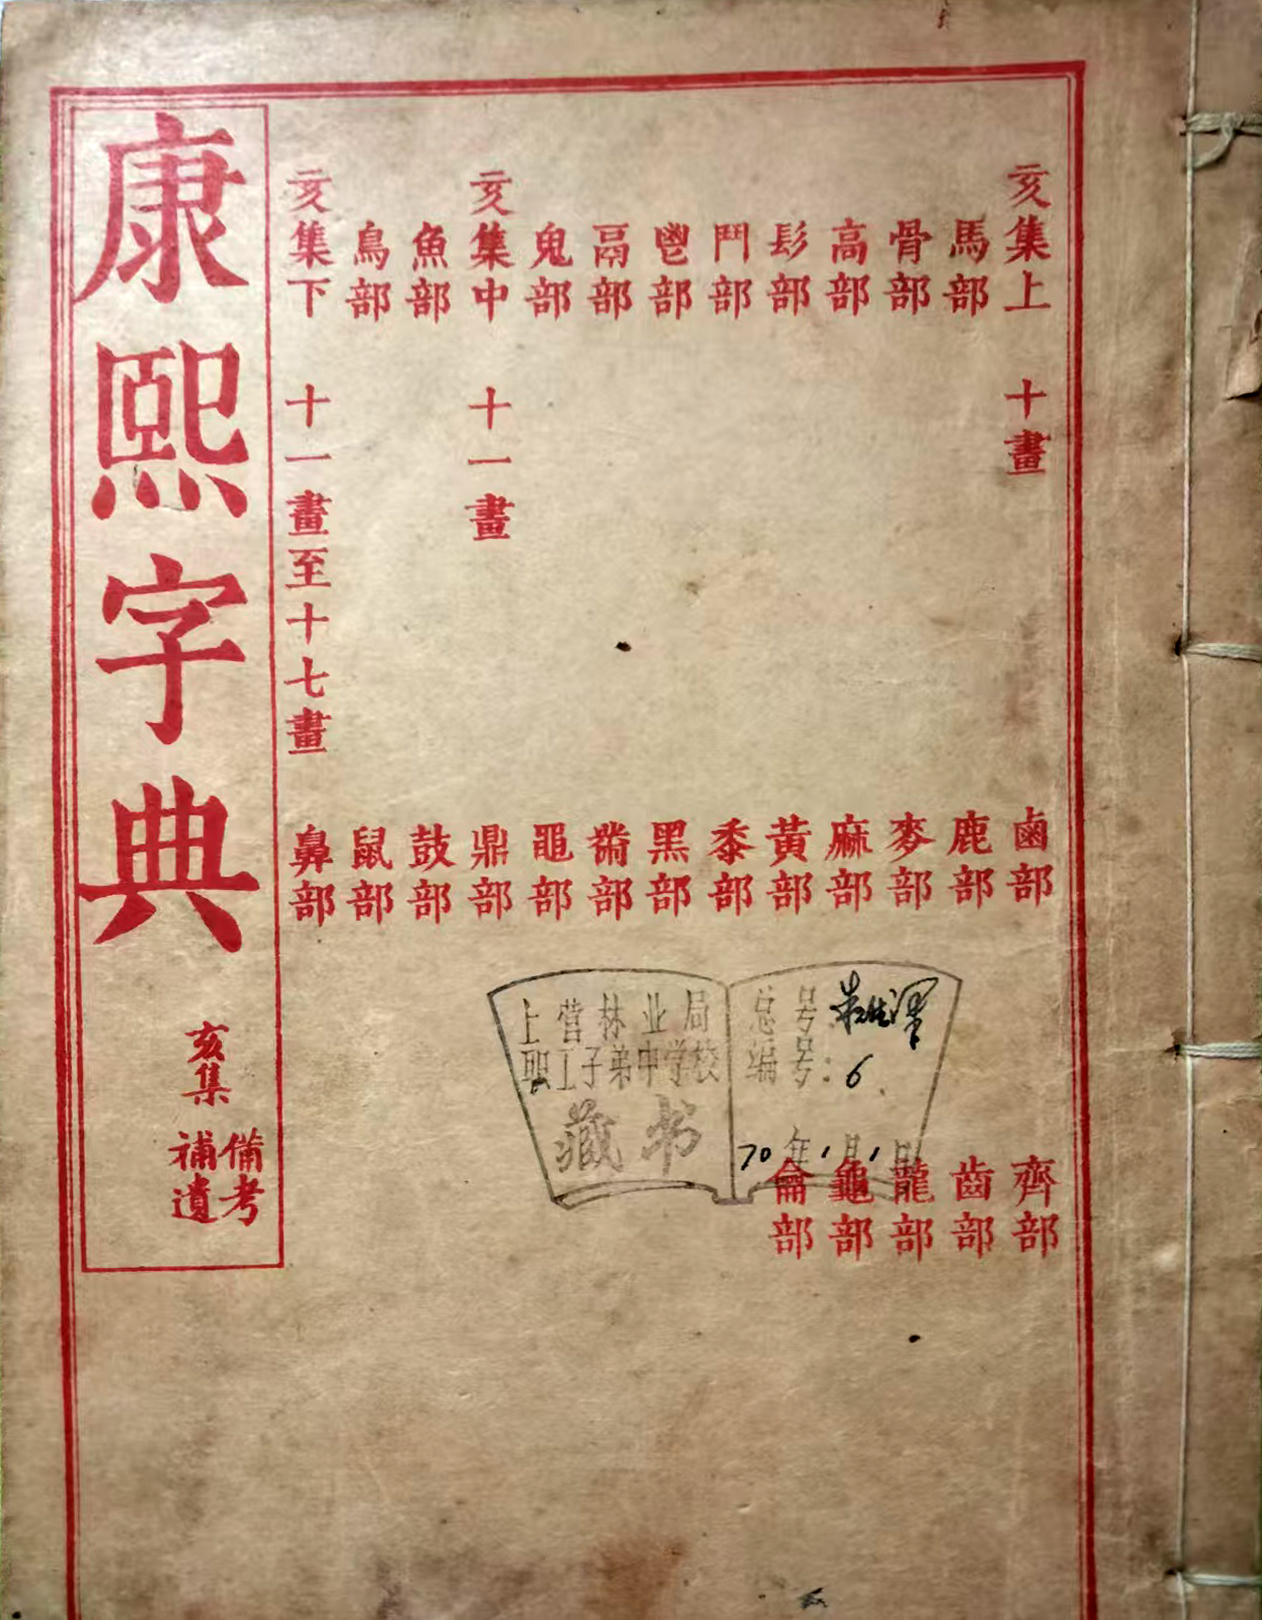 亥集上 十畫
馬部
骨部
高部
髟部
鬥部
鬯部
鬲部
鬼部
亥集中 十一畫
魚部
鳥部
亥集下 十一畫至十七畫
鹵部
鹿部
麥部
麻部
黃部
黍部
黑部
黹部
黽部
鼎部
鼓部
鼠部
鼻部
齊部
齒部
龍部
龜部
龠部
康熙字典
亥集
備考
補遺
上营林业局
职工子弟中学校
藏书
总号
编号:6
70年1月1日